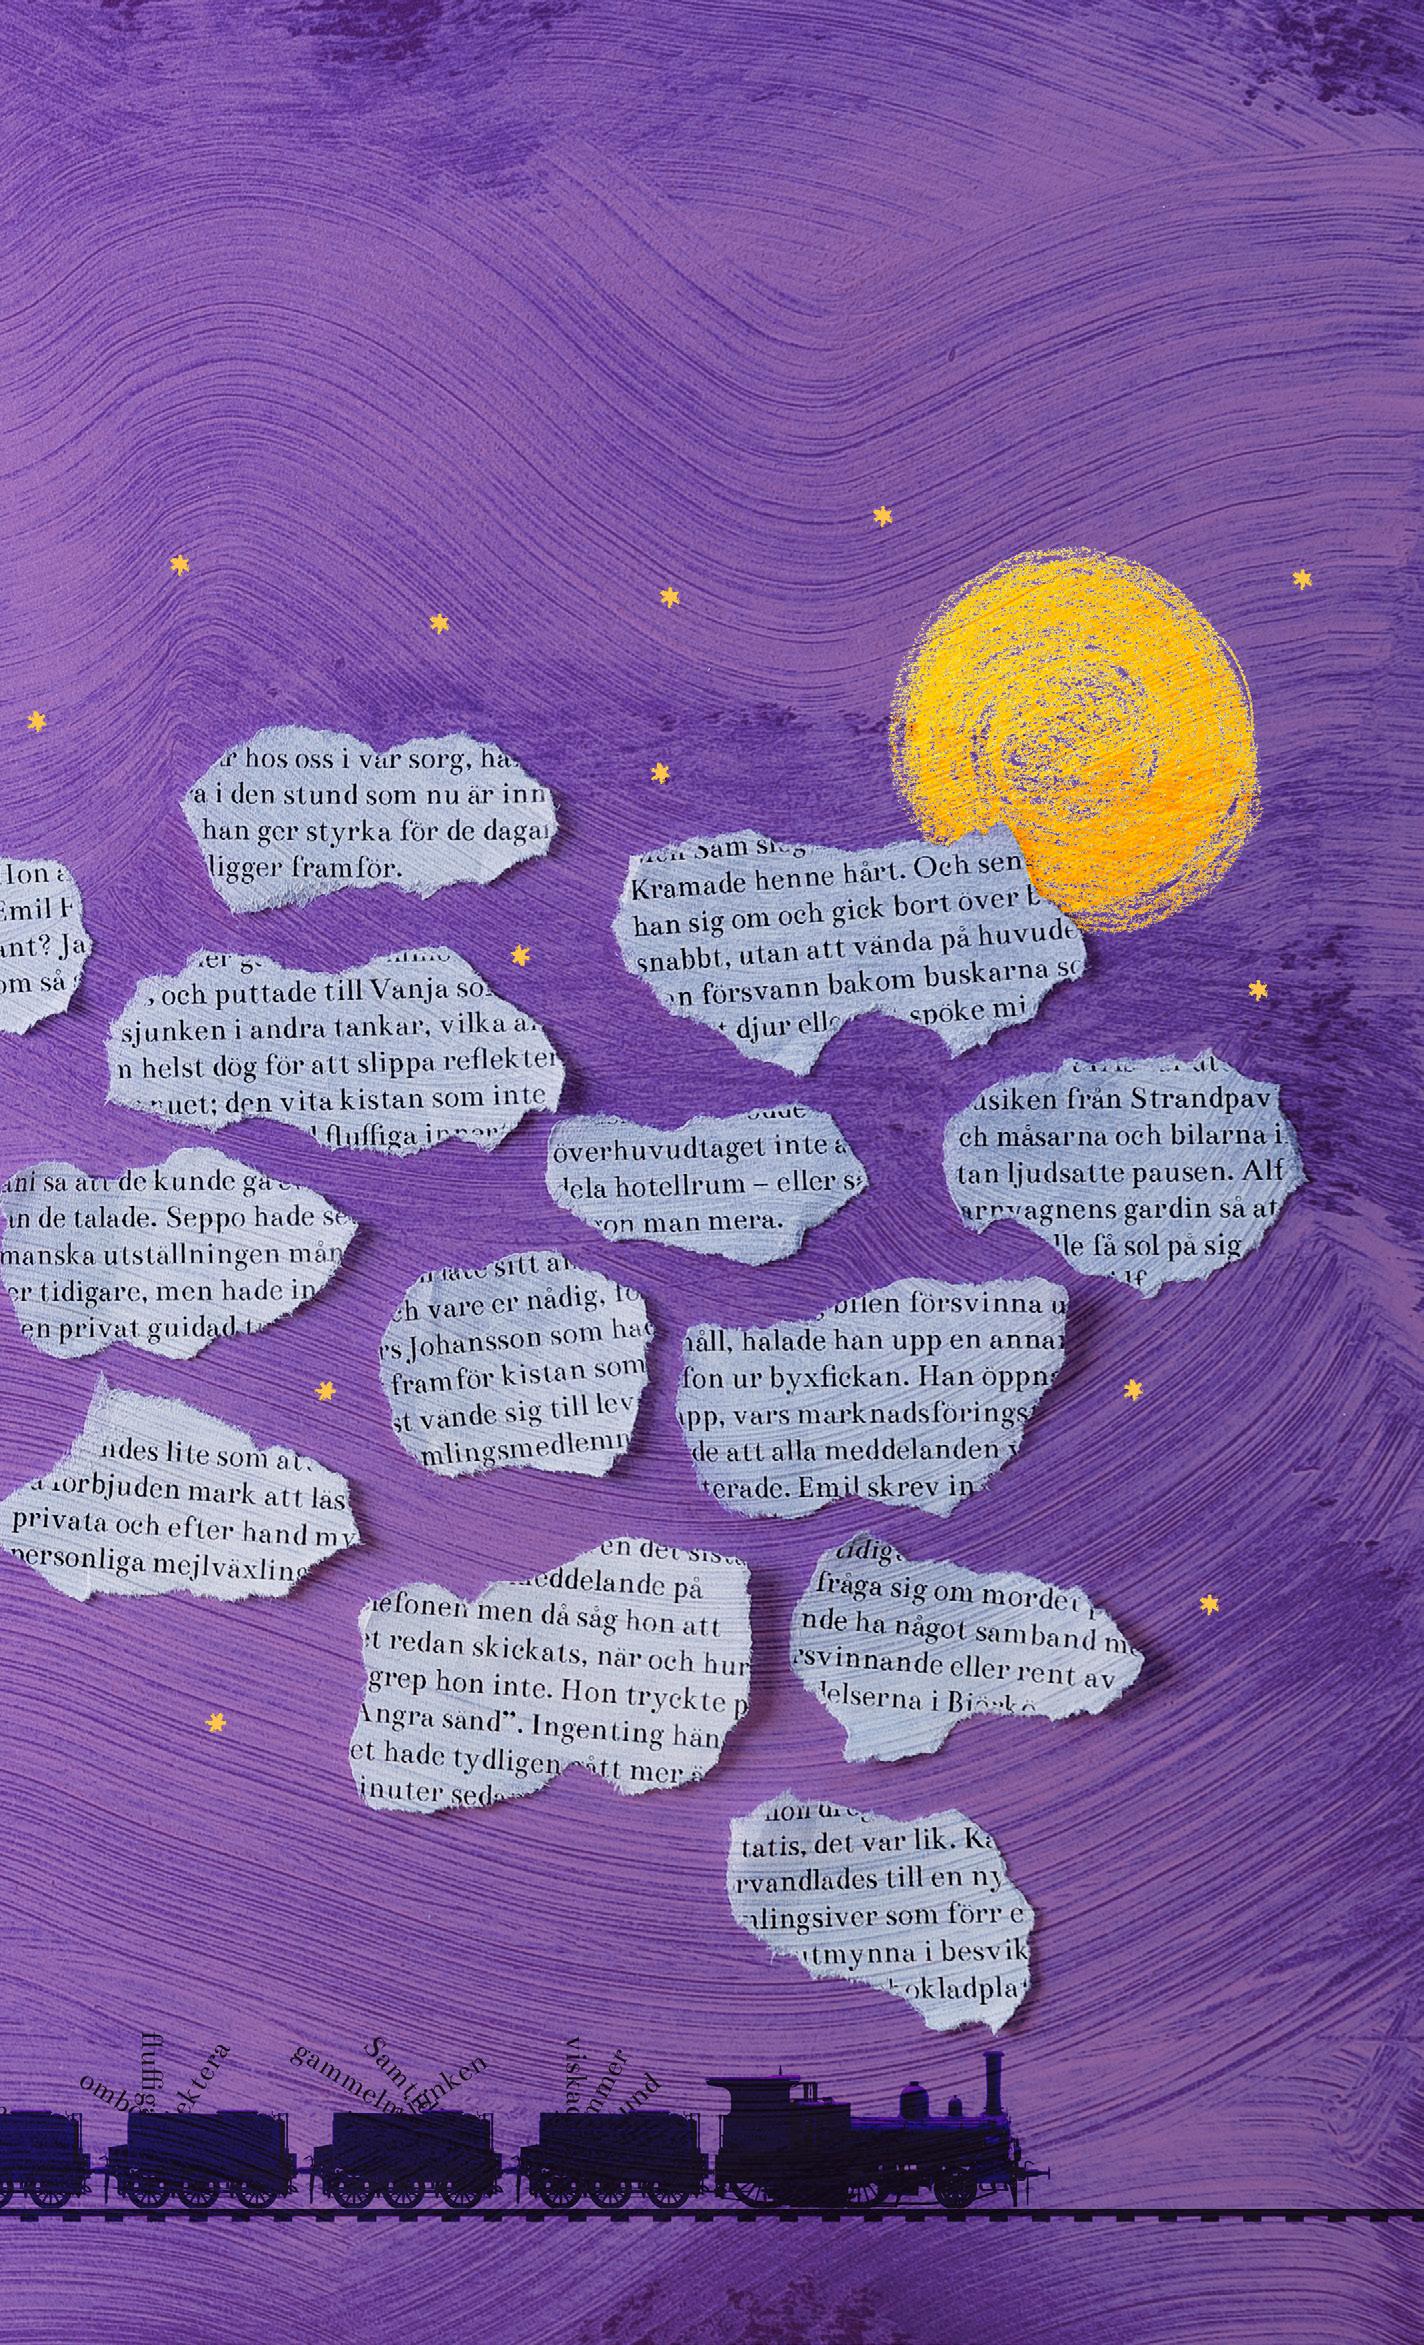 hos oss i vår sorg,
a i den stund som nu är inn
han ger styrka för de dagar
ligger framför.
Hon a
Emil F
ant? Ja
om så
Sam
Kramade henne hårt. Och sen
han sig om och gick bort över b
snabbt, utan att vända på huvude
n försvann bakom buskarna so
t djur elle spöke mi
, och puttade till Vanja so
sjunken i andra tankar, vilka a
n helst dög för att slippa reflekter
uet; den vita kistan som inte
fluffiga
överhuvudtaget inte a
dela hotellrum – eller sä
ron man mera.
usiken från Strandpav
ch måsarna och bilarna i
tan ljudsatte pausen. Alf
arnvagnens gardin så at
lle få sol på sig
lf
ani sa att de kunde gå
n de talade. Seppo hade se
manska utställningen mån
er tidigare, men hade in
en privat guidad t
sitt
ch vare er nådig, fö
rs Johansson som had
framför kistan som
st vände sig till lev
mlingsmedlemm
bilen försvinna u
håll, halade han upp en annan
fon ur byxfickan. Han öppna
app, vars marknadsförings
de att alla meddelanden v
terade. Emil skrev in
ndes lite som at
förbjuden mark att läs
privata och efter hand my
personliga mejlväxling
en det sista
meddelande på
lefonen men då såg hon att
et redan skickats, när och hur
grep hon inte. Hon tryckte p
Ångra sänd”. Ingenting hän
et hade tydligen gått mer ä
inuter seda
tidig
fråga sig om mordet p
nde ha något samband me
rsvinnande eller rent av
delserna i Björkö
hon
tatis, det var lik. Ka
rvandlades till en ny
mlingsiver som förr e
utmynna i besvik
okladpla
fluffiga
ombo
ektera
gammelm
Samti
unken
viska
mmer
und